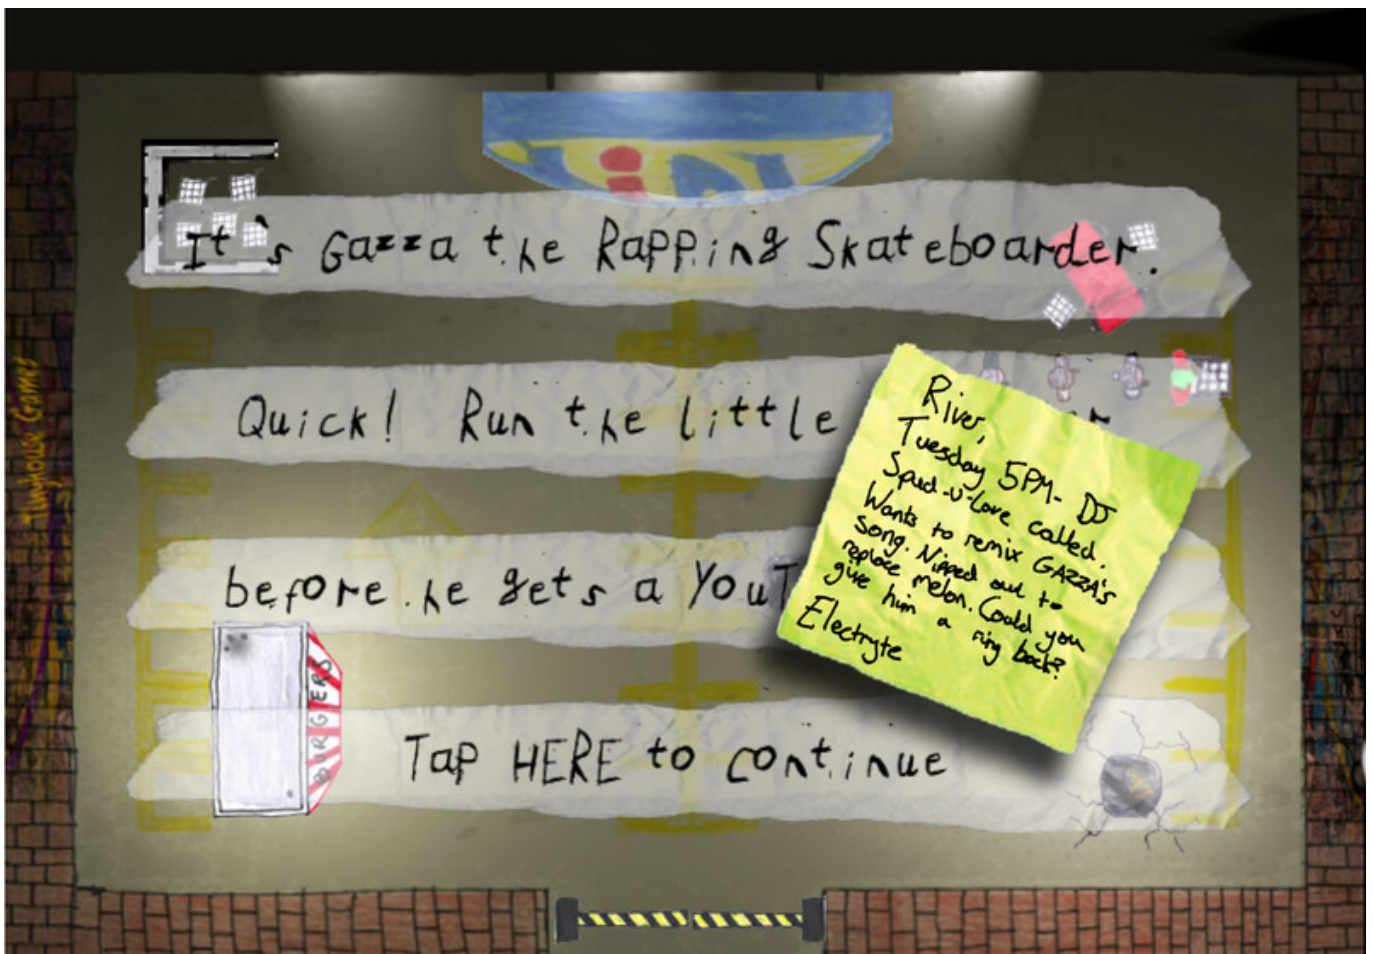 It's Gazza the Rapping Skateboarder.
Quick! Run the little
before he gets a YouT
Tap HERE to continue
River,
Tuesday 5PM- DJ
Spud-U-Love called.
Wants to remix GAZZA's
song. Nipped out to
replace melon. Could you
give him a ring back?
Electryte
BURGERS
Funhouse Games